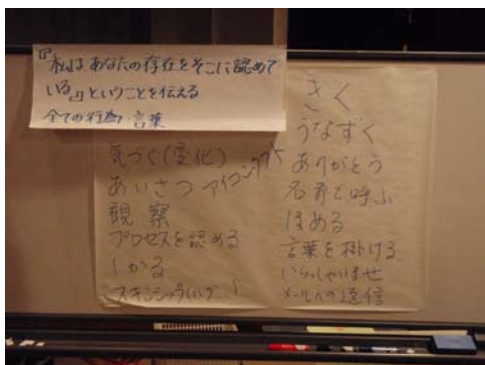 『私は、あなたの存在をそこに認めて
いる』ということを伝える
全ての行為・言葉
気づく(変化)
あいさつ アイコンタクト
観察
プロセスを認める
しかる
スキンシップ
きく
うなずく
ありがとう
名前で呼ぶ
ほめる
言葉を掛ける
いらっしゃいませ
メールへの返信